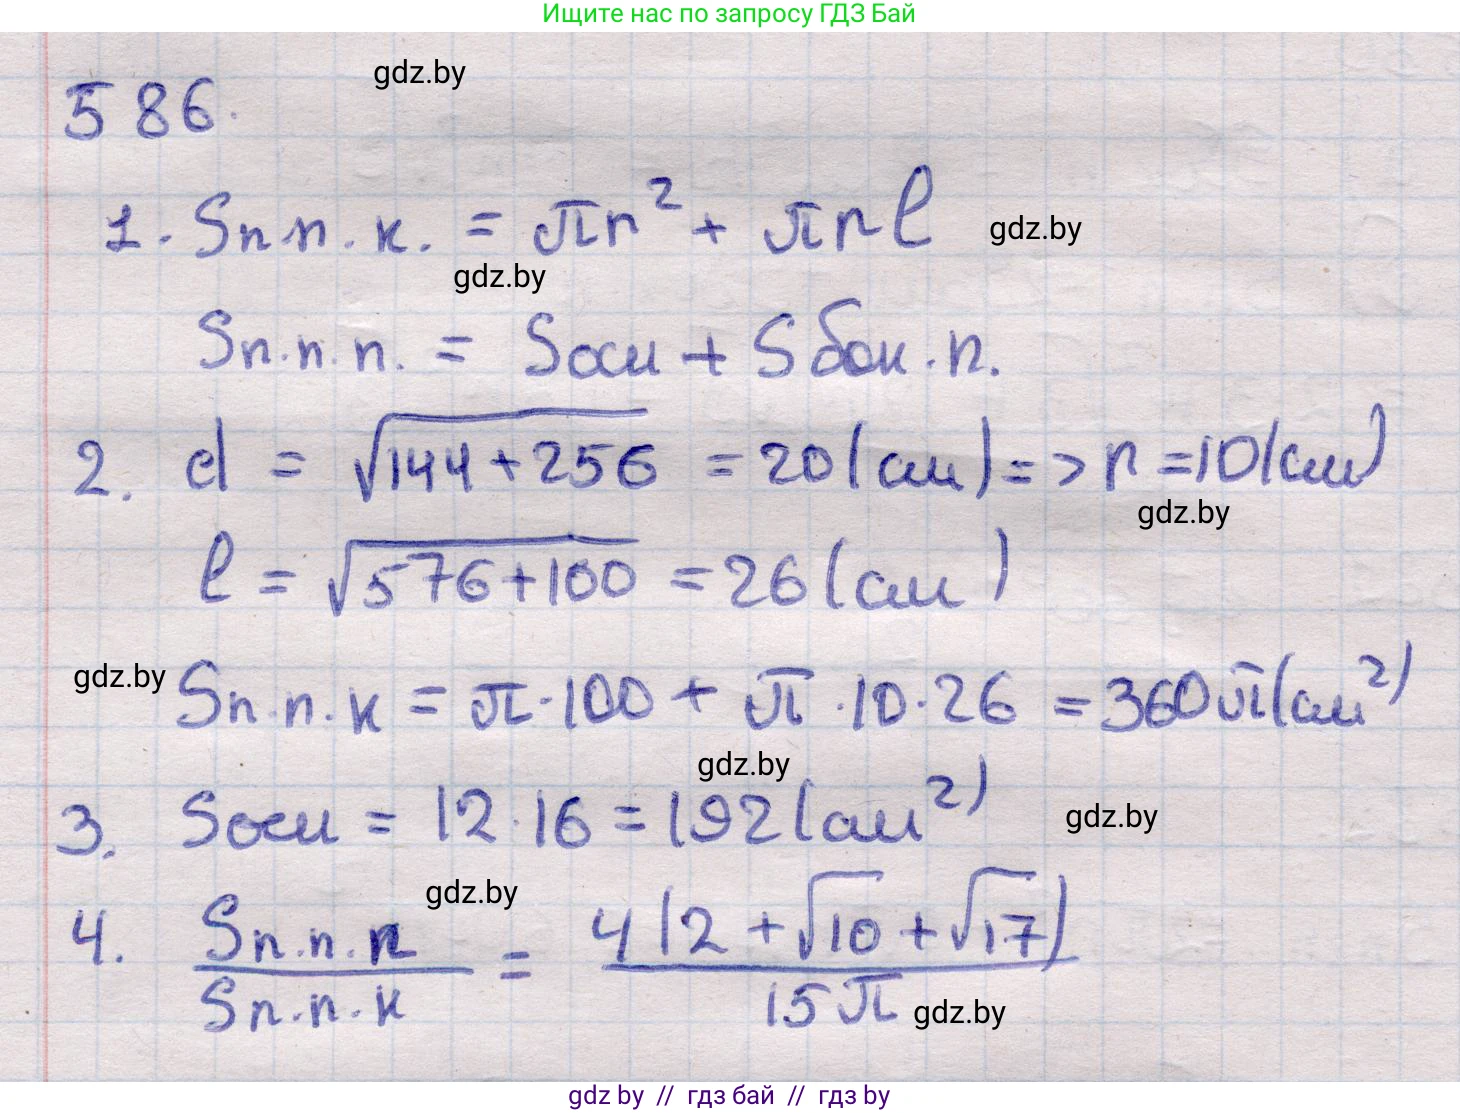 Ищите нас по запросу ГДЗ Бай
gdz.by
586.
1. Sп.п.к. = πr² + πrl
gdz.by
gdz.by
Sп.п.п. = Sосн + Sбок.п.
2. d = √144+256 = 20(см) => r = 10(см)
gdz.by
l = √576+100 = 26(см)
gdz.by
Sп.п.к = π·100 + π·10·26 = 360π(см²)
gdz.by
3. Sосн = 12·16 = 192(см²)
gdz.by
gdz.by
4. Sп.п.п / Sп.п.к = 4(2+√10+√17) / 15π
gdz.by
gdz by // гдз бай // гдз by